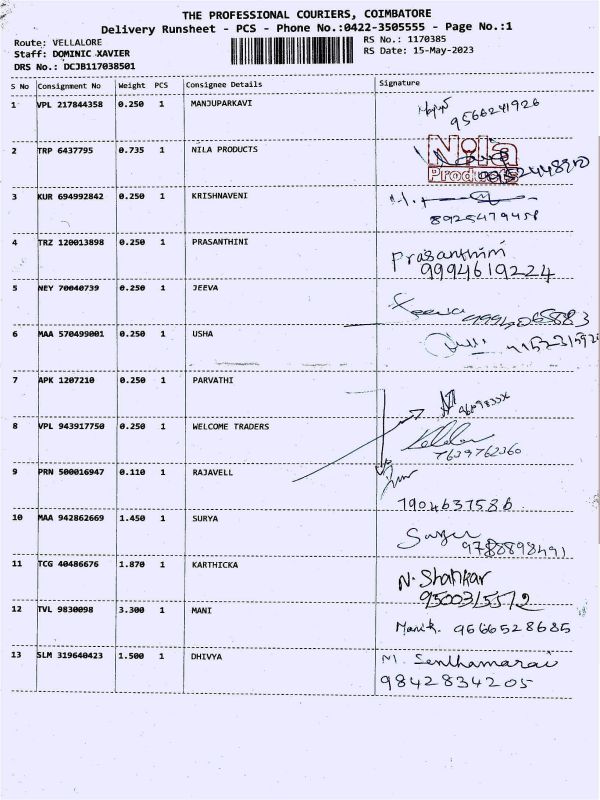 THE PROFESSIONAL COURIERS, COIMBATORE
Delivery Runsheet - PCS - Phone No.:0422-3505555 - Page No.:1
Route: VELLALORE
RS No.: 1170385
Staff: DOMINIC XAVIER
RS Date: 15-May-2023
DRS No.: DCJB117038501
S No Consignment No Weight PCS Consignee Details Signature
1 VPL 217844358 0.250 1 MANJUPARKAVI
9566241926
2 TRP 6437795 0.735 1 NILA PRODUCTS
Nila
Products
3 KUR 694992842 0.250 1 KRISHNAVENI
8925479458
4 TRZ 120013898 0.250 1 PRASANTHINI
Prasanthini
9994619224
5 NEY 70040739 0.250 1 JEEVA
Jeeva 9994065883
6 MAA 570499001 0.250 1 USHA
7 APK 1207210 0.250 1 PARVATHI
8 VPL 943917750 0.250 1 WELCOME TRADERS
7639762360
9 PRN 500016947 0.110 1 RAJAVELL
7904637586
10 MAA 942862669 1.450 1 SURYA
9788898491
11 TCG 40486676 1.870 1 KARTHICKA
N. Shankar
9500315512
12 TVL 9830098 3.300 1 MANI
9566528685
13 SLM 319640423 1.500 1 DHIVYA
M. Senthamarai
9842834205